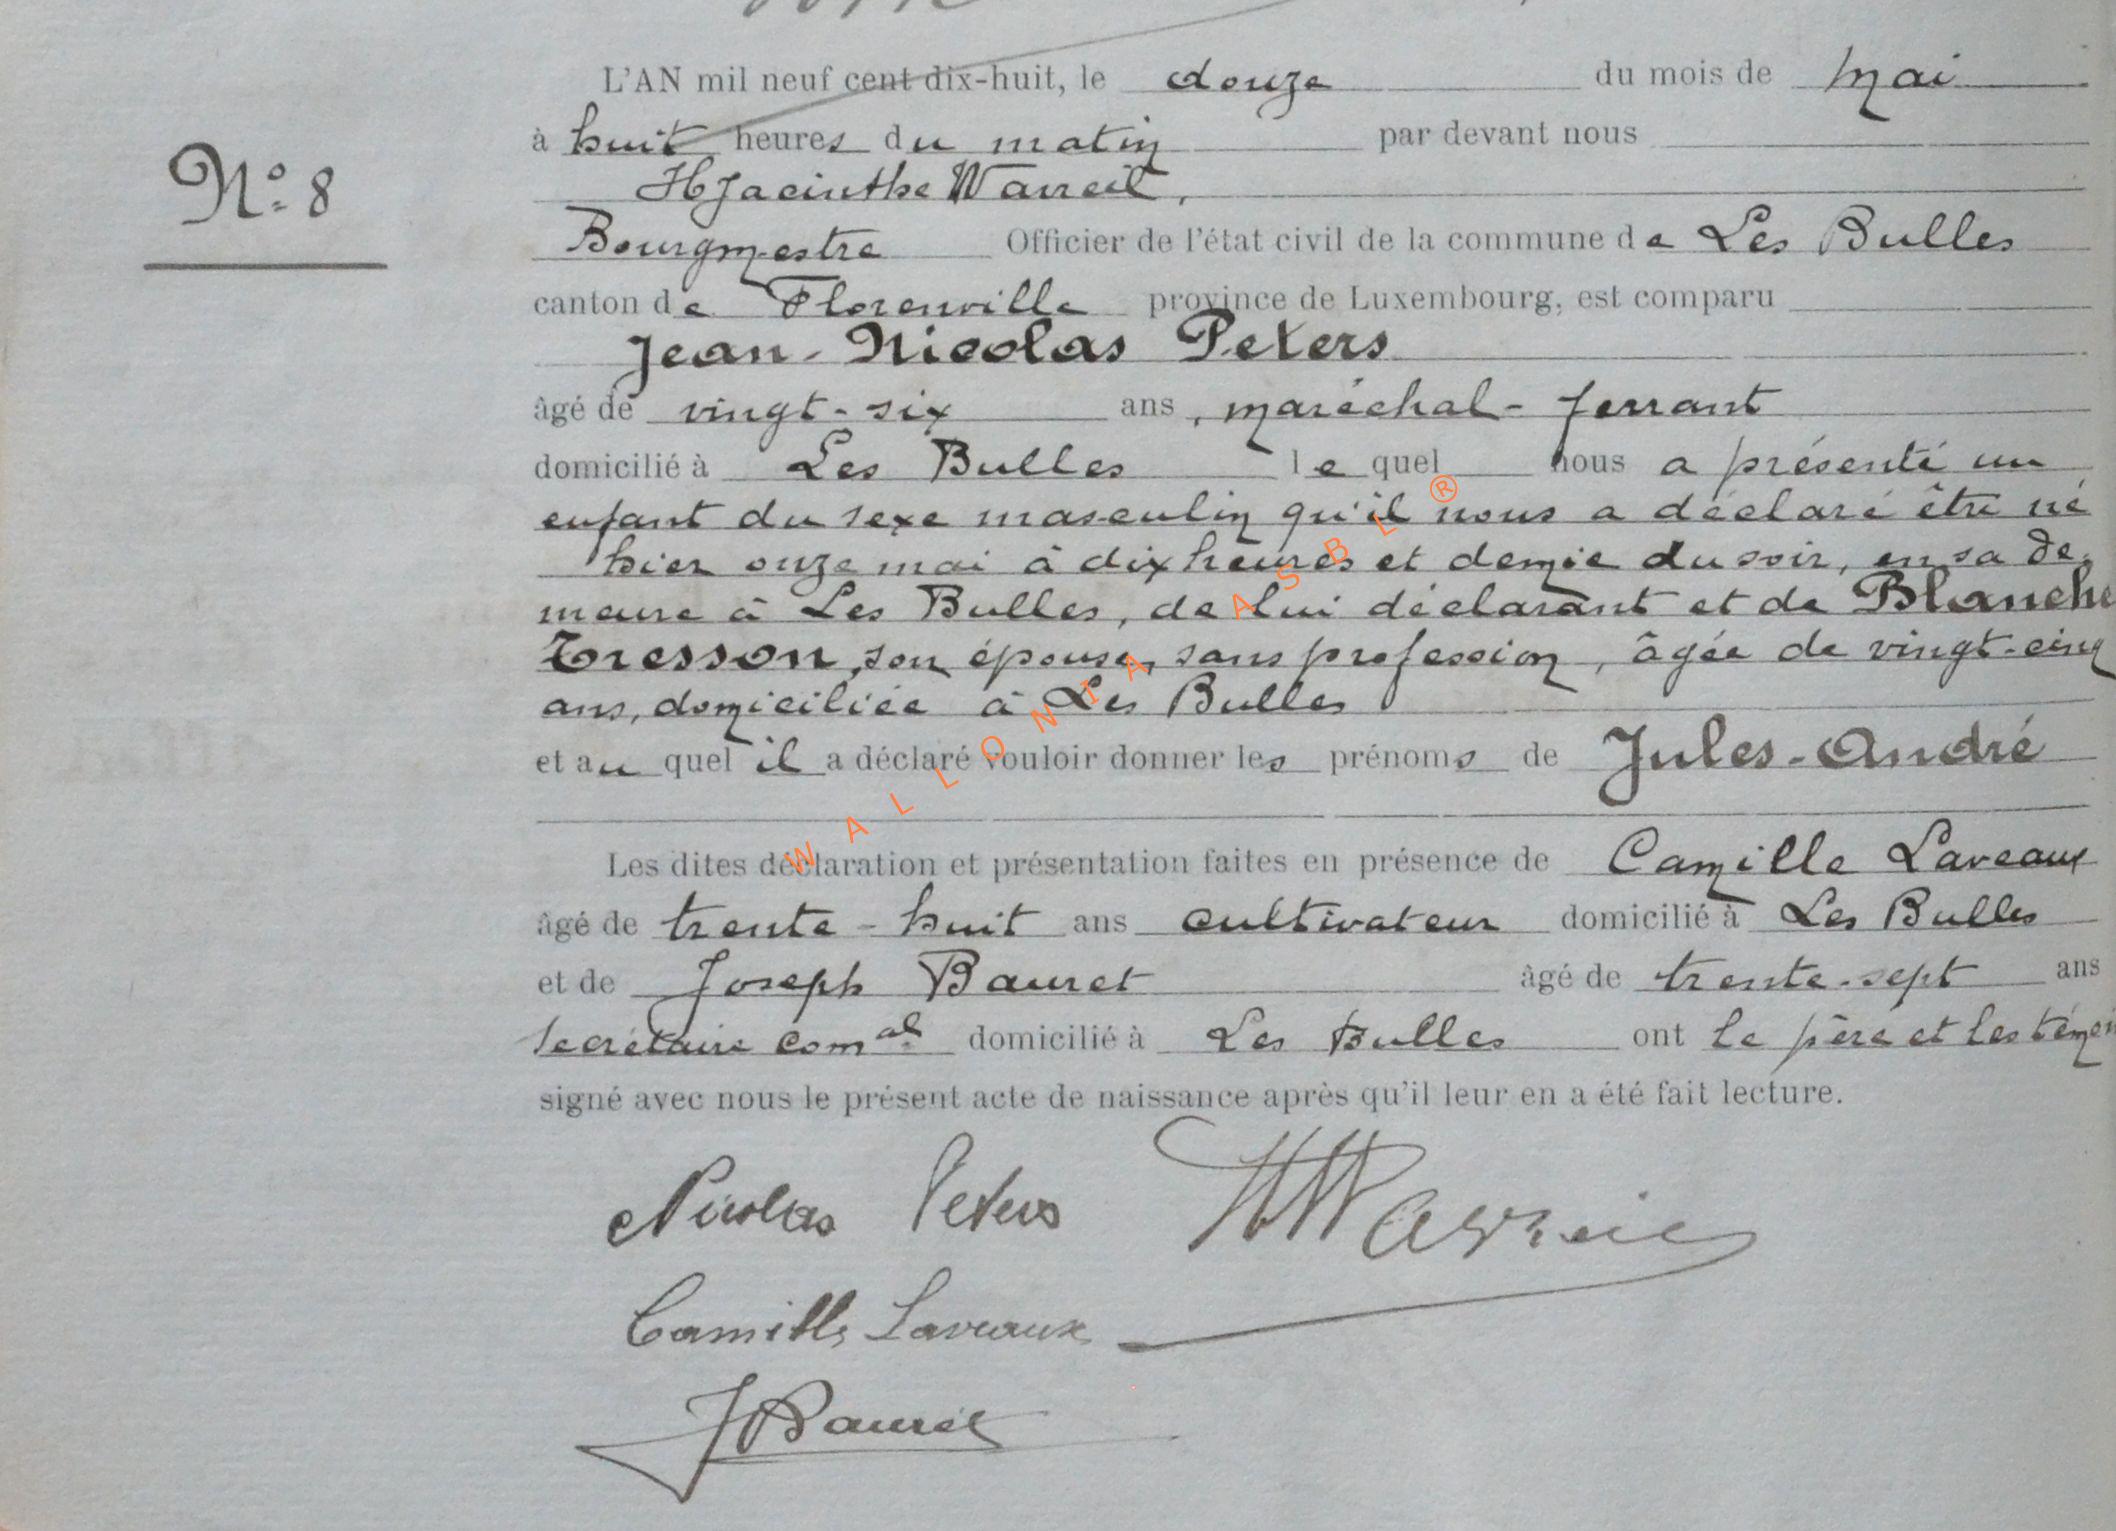 N° 8
L'AN mil neuf cent dix-huit, le douze du mois de Mai
à huit heures du matin par devant nous
Hyacinthe Warreit,
Bourgmestre Officier de l'état civil de la commune de Les Bulles
canton de Florenville province de Luxembourg, est comparu
Jean-Nicolas Peters
âgé de vingt-six ans, maréchal-ferrant
domicilié à Les Bulles lequel nous a présenté un
enfant du sexe masculin qu'il nous a déclaré être né
hier onze mai à dix heures et demie du soir, en sa de-
meure à Les Bulles, de lui déclarant et de Blanche
Tresson, son épouse, sans profession, âgée de vingt-cinq
ans, domiciliée à Les Bulles
et auquel il a déclaré vouloir donner les prénoms de Jules-André
Les dites déclaration et présentation faites en présence de Camille Laveaux
âgé de trente-huit ans cultivateur domicilié à Les Bulles
et de Joseph Bauret âgé de trente-sept ans
secrétaire comal domicilié à Les Bulles ont le père et les témoin
signé avec nous le présent acte de naissance après qu'il leur en a été fait lecture.
Nicolas Peters
Camille Laveaux
J Bauret
WALLONIA ASBL ®